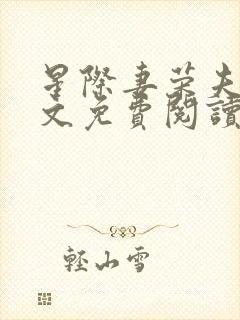 星際妻榮夫
文免費閱讀
輕山雪